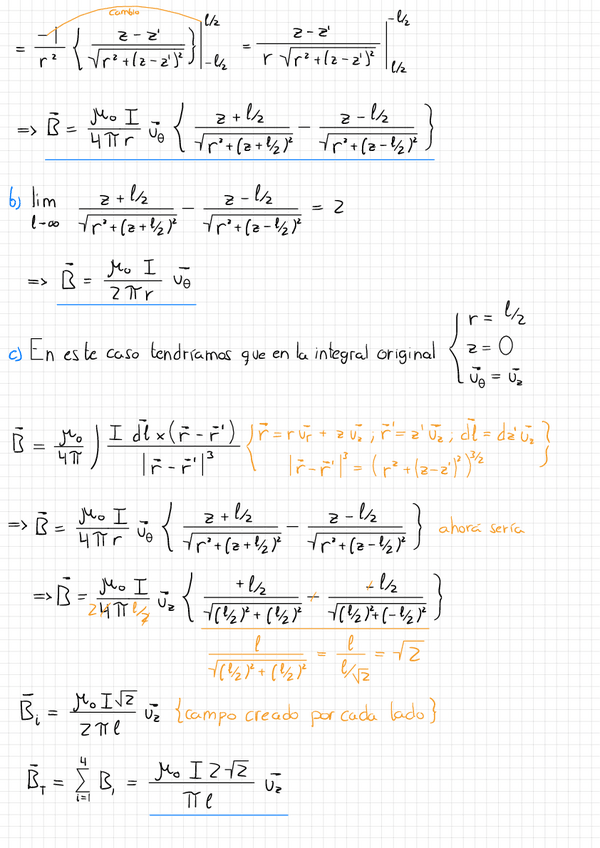 Cambio
= -1/r² { (z - z') / √(r² + (z - z')²) } |_{-l/2}^{l/2} = (z - z') / (r √(r² + (z - z')²)) |_{l/2}^{-l/2}
=> B̄ = (μ₀ I / 4πr) ū_θ { (z + l/2) / √(r² + (z + l/2)²) - (z - l/2) / √(r² + (z - l/2)²) }
b) lim_{l→∞} (z + l/2) / √(r² + (z + l/2)²) - (z - l/2) / √(r² + (z - l/2)²) = 2
=> B̄ = (μ₀ I / 2πr) ū_θ
c) En este caso tendríamos que en la integral original { r = l/2
z = 0
ū_θ = ū_z
B̄ = (μ₀ / 4π) ∫ I dl̄ × (r̄ - r̄') / |r̄ - r̄'|³ { r̄ = r ū_r + z ū_z ; r̄' = z' ū_z ; dl̄ = dz' ū_z
|r̄ - r̄'|³ = (r² + (z - z')²)^{3/2} }
=> B̄ = (μ₀ I / 4πr) ū_θ { (z + l/2) / √(r² + (z + l/2)²) - (z - l/2) / √(r² + (z - l/2)²) } ahora sería
=> B̄ = (μ₀ I / 4π l/2) ū_z { +l/2 / √((l/2)² + (l/2)²) - -l/2 / √((l/2)² + (-l/2)²) }
l / √((l/2)² + (l/2)²) = l / (l/√2) = √2
B̄ᵢ = (μ₀ I √2 / 2πl) ū_z {campo creado por cada lado}
B̄_T = Σ_{i=1}^{4} Bᵢ = (μ₀ I 2√2 / πl) ū_z